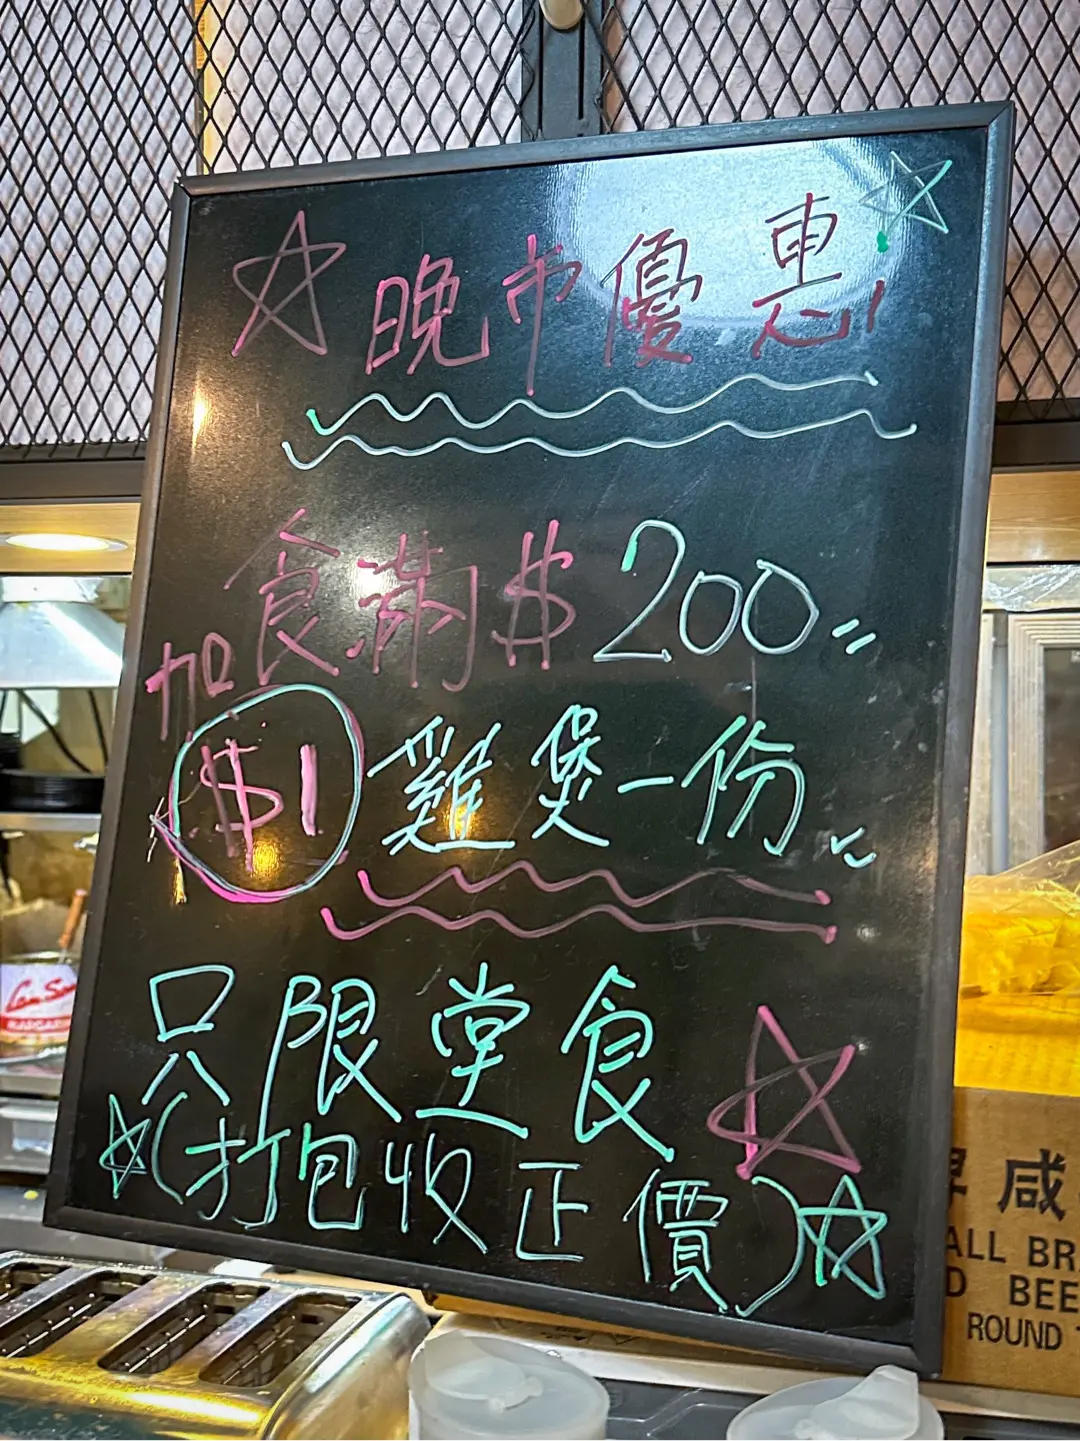 晚市優惠!
食滿$200
加$1雞煲一份
只限堂食
(打包收正價)
咸
ALL BR
BEE
ROUND